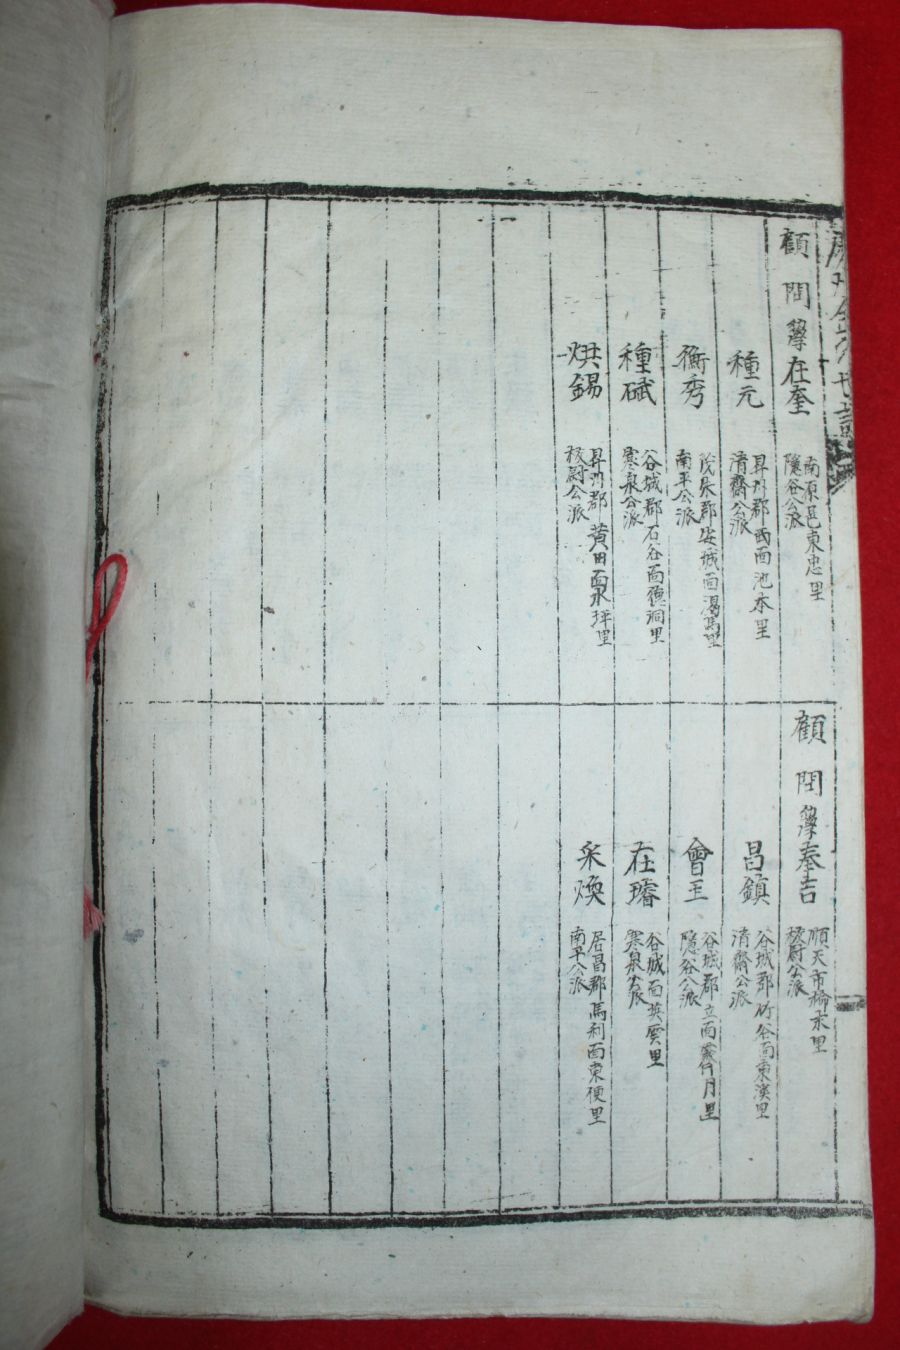 顧問 學 在奎 南原邑東忠里
隱谷公派
種元 昇州郡西面池本里
清齋公派
衡秀 茂朱郡安城面渴馬里
南平公派
種砇 谷城郡石谷面德洞里
寒泉公派
烘錫 昇州郡黃田面泉坪里
校尉公派
顧問 學 奉吉 順天市榆木里
校尉公派
昌鎮 谷城郡竹谷面東溪里
清齋公派
會王 谷城郡立面霽月里
隱谷公派
在璿 谷城面英雲里
寒泉公派
采煥 居昌郡馬利面栗梗里
南平公派